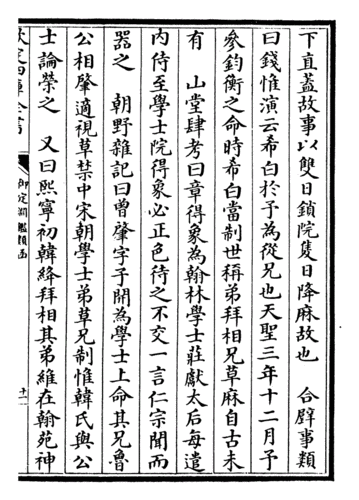 下直蓋故事以雙日鎖院隻日降麻故也　合辟事類
曰錢惟演云希白於予為從兄也天聖三年十二月予
參鈞衡之命時希白當制世稱弟拜相兄草麻自古未
有　山堂肆考曰章得象為翰林學士莊獻太后每遣
内侍至學士院得象必正色待之不交一言仁宗聞而
器之　朝野雜記曰曾肇字子開為學士上命其兄魯
公相肇適視草禁中宋朝學士弟草兄制惟韓氏與公
士論榮之　又曰熙寧初韓絳拜相其弟維在翰苑神
御定淵鑑類函
十二